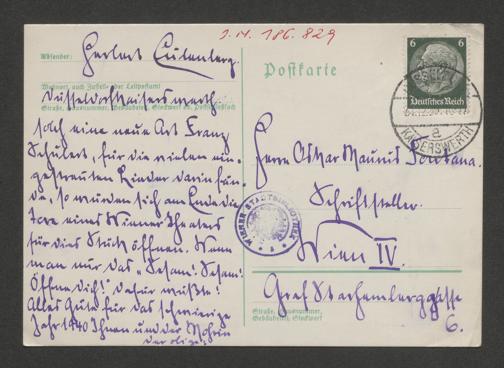 J. N. 186.829
Absender: Herbert Eulenberg.
Wohnort, auch Zustell- oder Leitpostamt
Düsseldorf-Kaiserswerth.
Straße, Hausnummer, Gebäudeteil, Stockwerk od. Postschließfach
Postkarte
6 6
Deutsches Reich
KAISERSWERTH
a
solch eine neue Art Franz
Schubert, für die vielen ein-
gestreuten Lieder darin fän-
de, so würden sich am Ende die
Tore eines Wiener Theaters
für dies Stück öffnen. Wenn
man nur das „Sesam! Sesam!
Öffne dich!" dafür wüßte!
Alles Gute für das schwierige
Jahr 1940 Ihnen und der
der obige.
Herrn Oskar Maurus Fontana.
Schriftsteller.
WIENER STADTBIBLIOTHEK
Wien IV.
Graf Starhemberggasse
6.
Straße, Hausnummer,
Gebäudeteil, Stockwerk